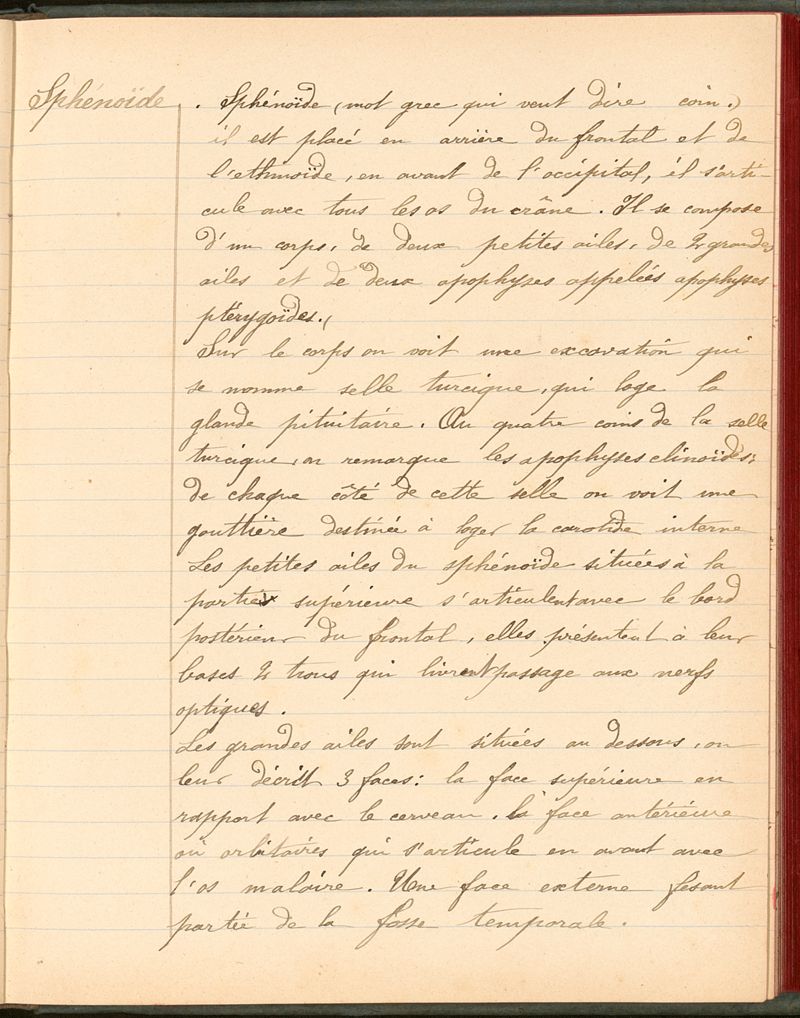 Sphénoïde. . Sphénoïde (mot grec qui veut dire coin.)
il est placé en arrière du frontal et de
l'ethmoïde, en avant de l'occipital, il s'arti-
cule avec tous les os du crâne. Il se compose
d'un corps, de deux petites ailes, de 2 grandes
ailes et de deux apophyses appelées apophyses
ptérygoïdes.
Sur le corps on voit une excavation qui
se nomme selle turcique, qui loge la
glande pituitaire. Au quatre coins de la selle
turcique, on remarque les apophyses clinoïdes;
de chaque côté de cette selle on voit une
gouttière destinée à loger la carotide interne
Les petites ailes du sphénoïde situées à la
partie supérieure s'articulent avec le bord
postérieur du frontal, elles présentent à leur
bases 2 trous qui livrent passage aux nerfs
optiques.
Les grandes ailes sont situées au dessous, on
leur décrit 3 faces: la face supérieure en
rapport avec le cerveau. la face antérieure
où orbitaires qui s'articule en avant avec
l'os malaire. Une face externe fesant
partie de la fosse temporale.